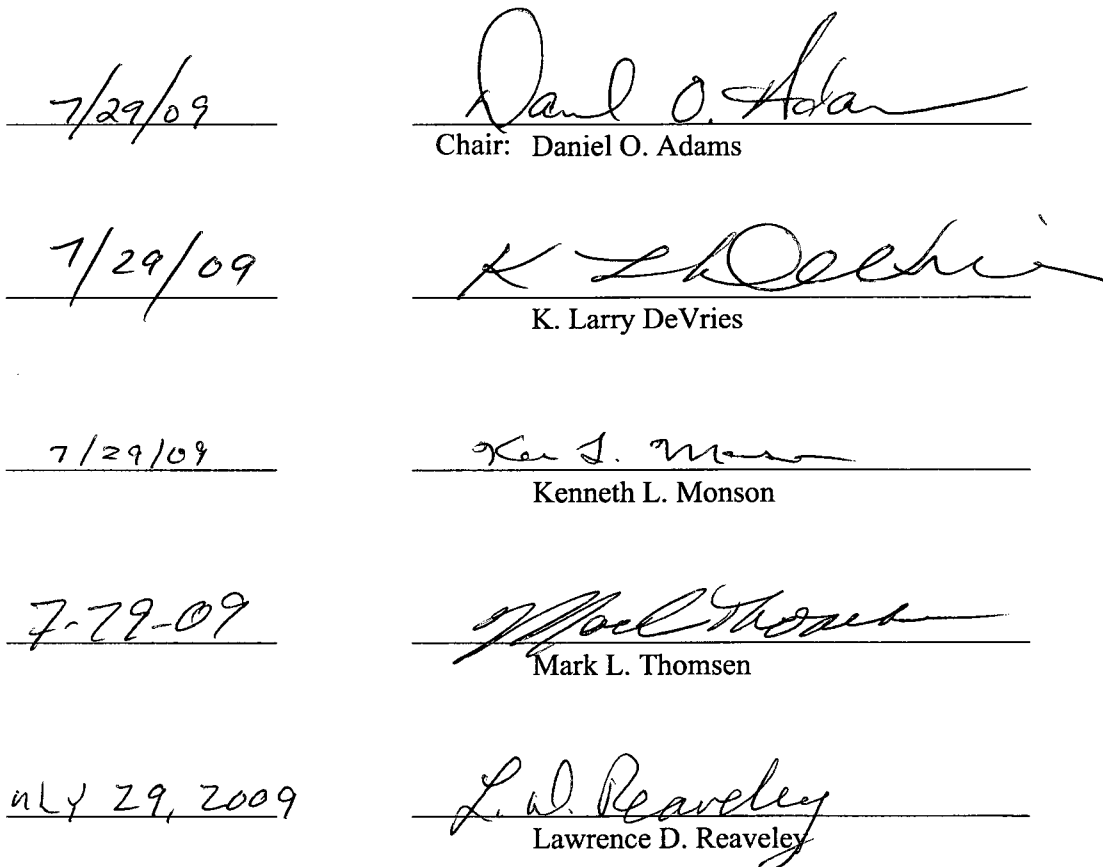 7/29/09 Daniel O. Adams
Chair: Daniel O. Adams
7/29/09 K L DeVries
K. Larry DeVries
7/29/09 Ken L. Monson
Kenneth L. Monson
7-29-09 Mark Thomsen
Mark L. Thomsen
uLY 29, 2009 L. D. Reaveley
Lawrence D. Reaveley